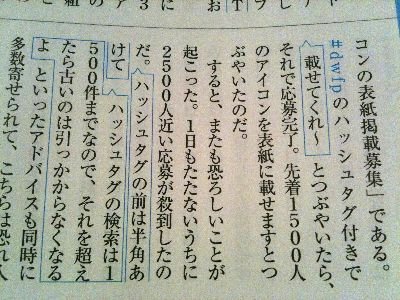 コンの表紙掲載募集」である。
#dwfpのハッシュタグ付きで
載せてくれ〜 とつぶやいたら、
それで応募完了。先着1500人
のアイコンを表紙に載せますとつ
ぶやいたのだ。
すると、またも恐ろしいことが
起こった。1日もたたないうちに
2500人近い応募が殺到したの
だ。 ハッシュタグの前は半角あ
けて ハッシュタグの検索は1
500件までなので、それを超え
たら古いのは引っかからなくなる
よ といったアドバイスも同時に
多数寄せられて、こちらは恐れ入